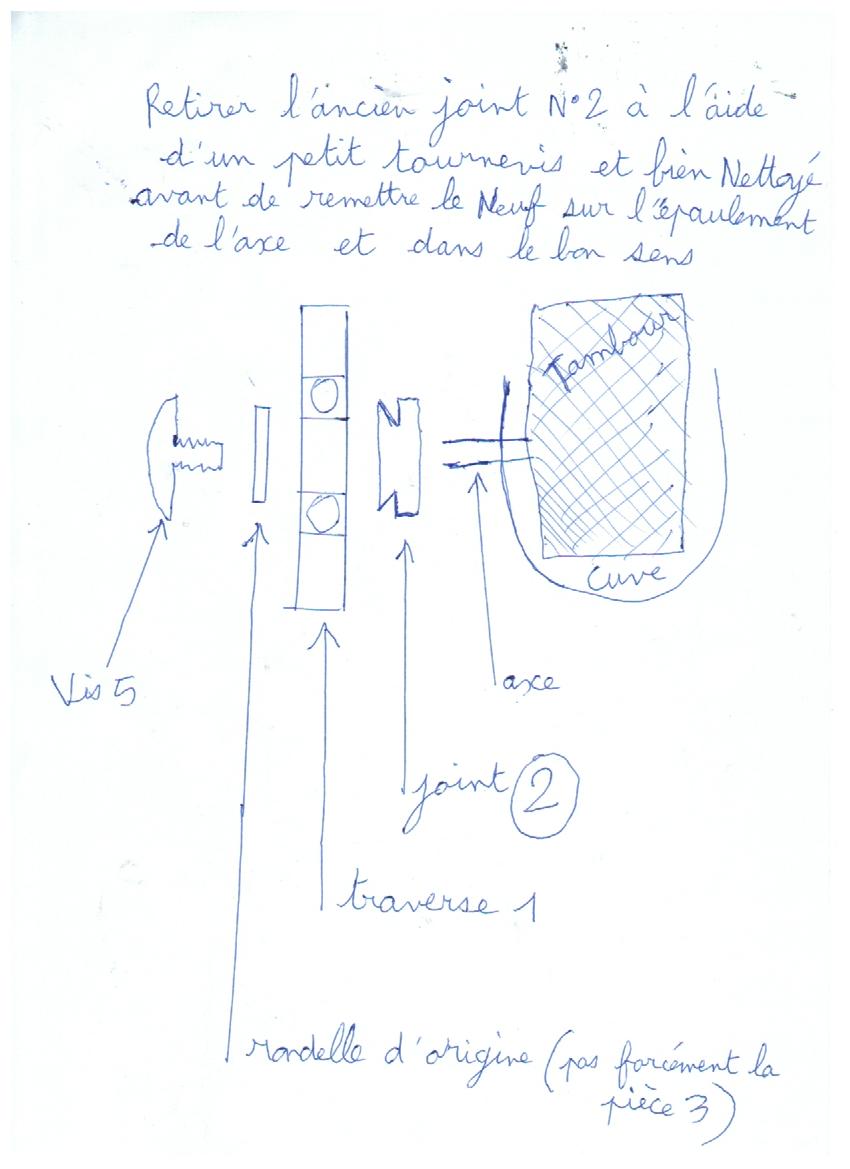 Retirer l'ancien joint N°2 à l'aide
d'un petit tournevis et bien Nettoyé
avant de remettre le Neuf sur l'épaulement
de l'axe et dans le bon sens
Tambour
Cuve
Vis 5
axe
joint 2
traverse 1
rondelle d'origine (pas forcément la
pièce 3)